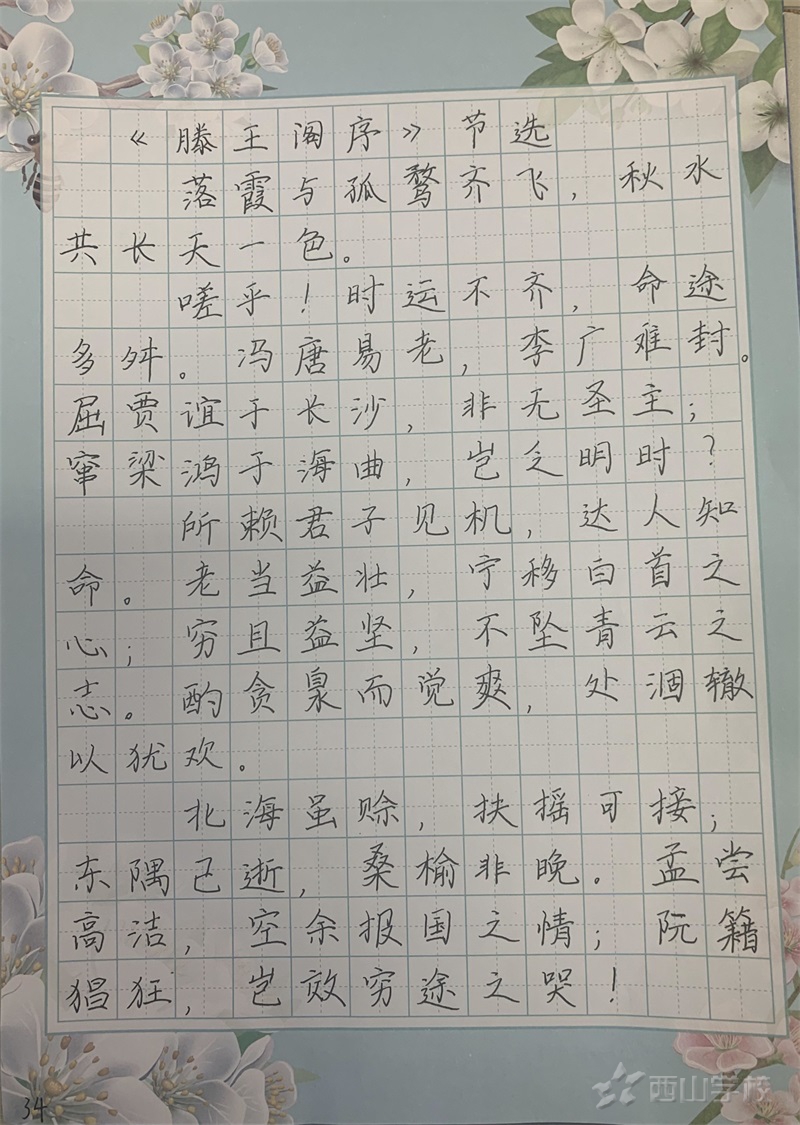 《滕王阁序》节选
落霞与孤鹜齐飞，秋水
共长天一色。
嗟乎！时运不齐，命途
多舛。冯唐易老，李广难封。
屈贾谊于长沙，非无圣主；
窜梁鸿于海曲，岂乏明时？
所赖君子见机，达人知
命。老当益壮，宁移白首之
心；穷且益坚，不坠青云之
志。酌贪泉而觉爽，处涸辙
以犹欢。
北海虽赊，扶摇可接；
东隅已逝，桑榆非晚。孟尝
高洁，空余报国之情；阮籍
猖狂，岂效穷途之哭！
34
西山学校